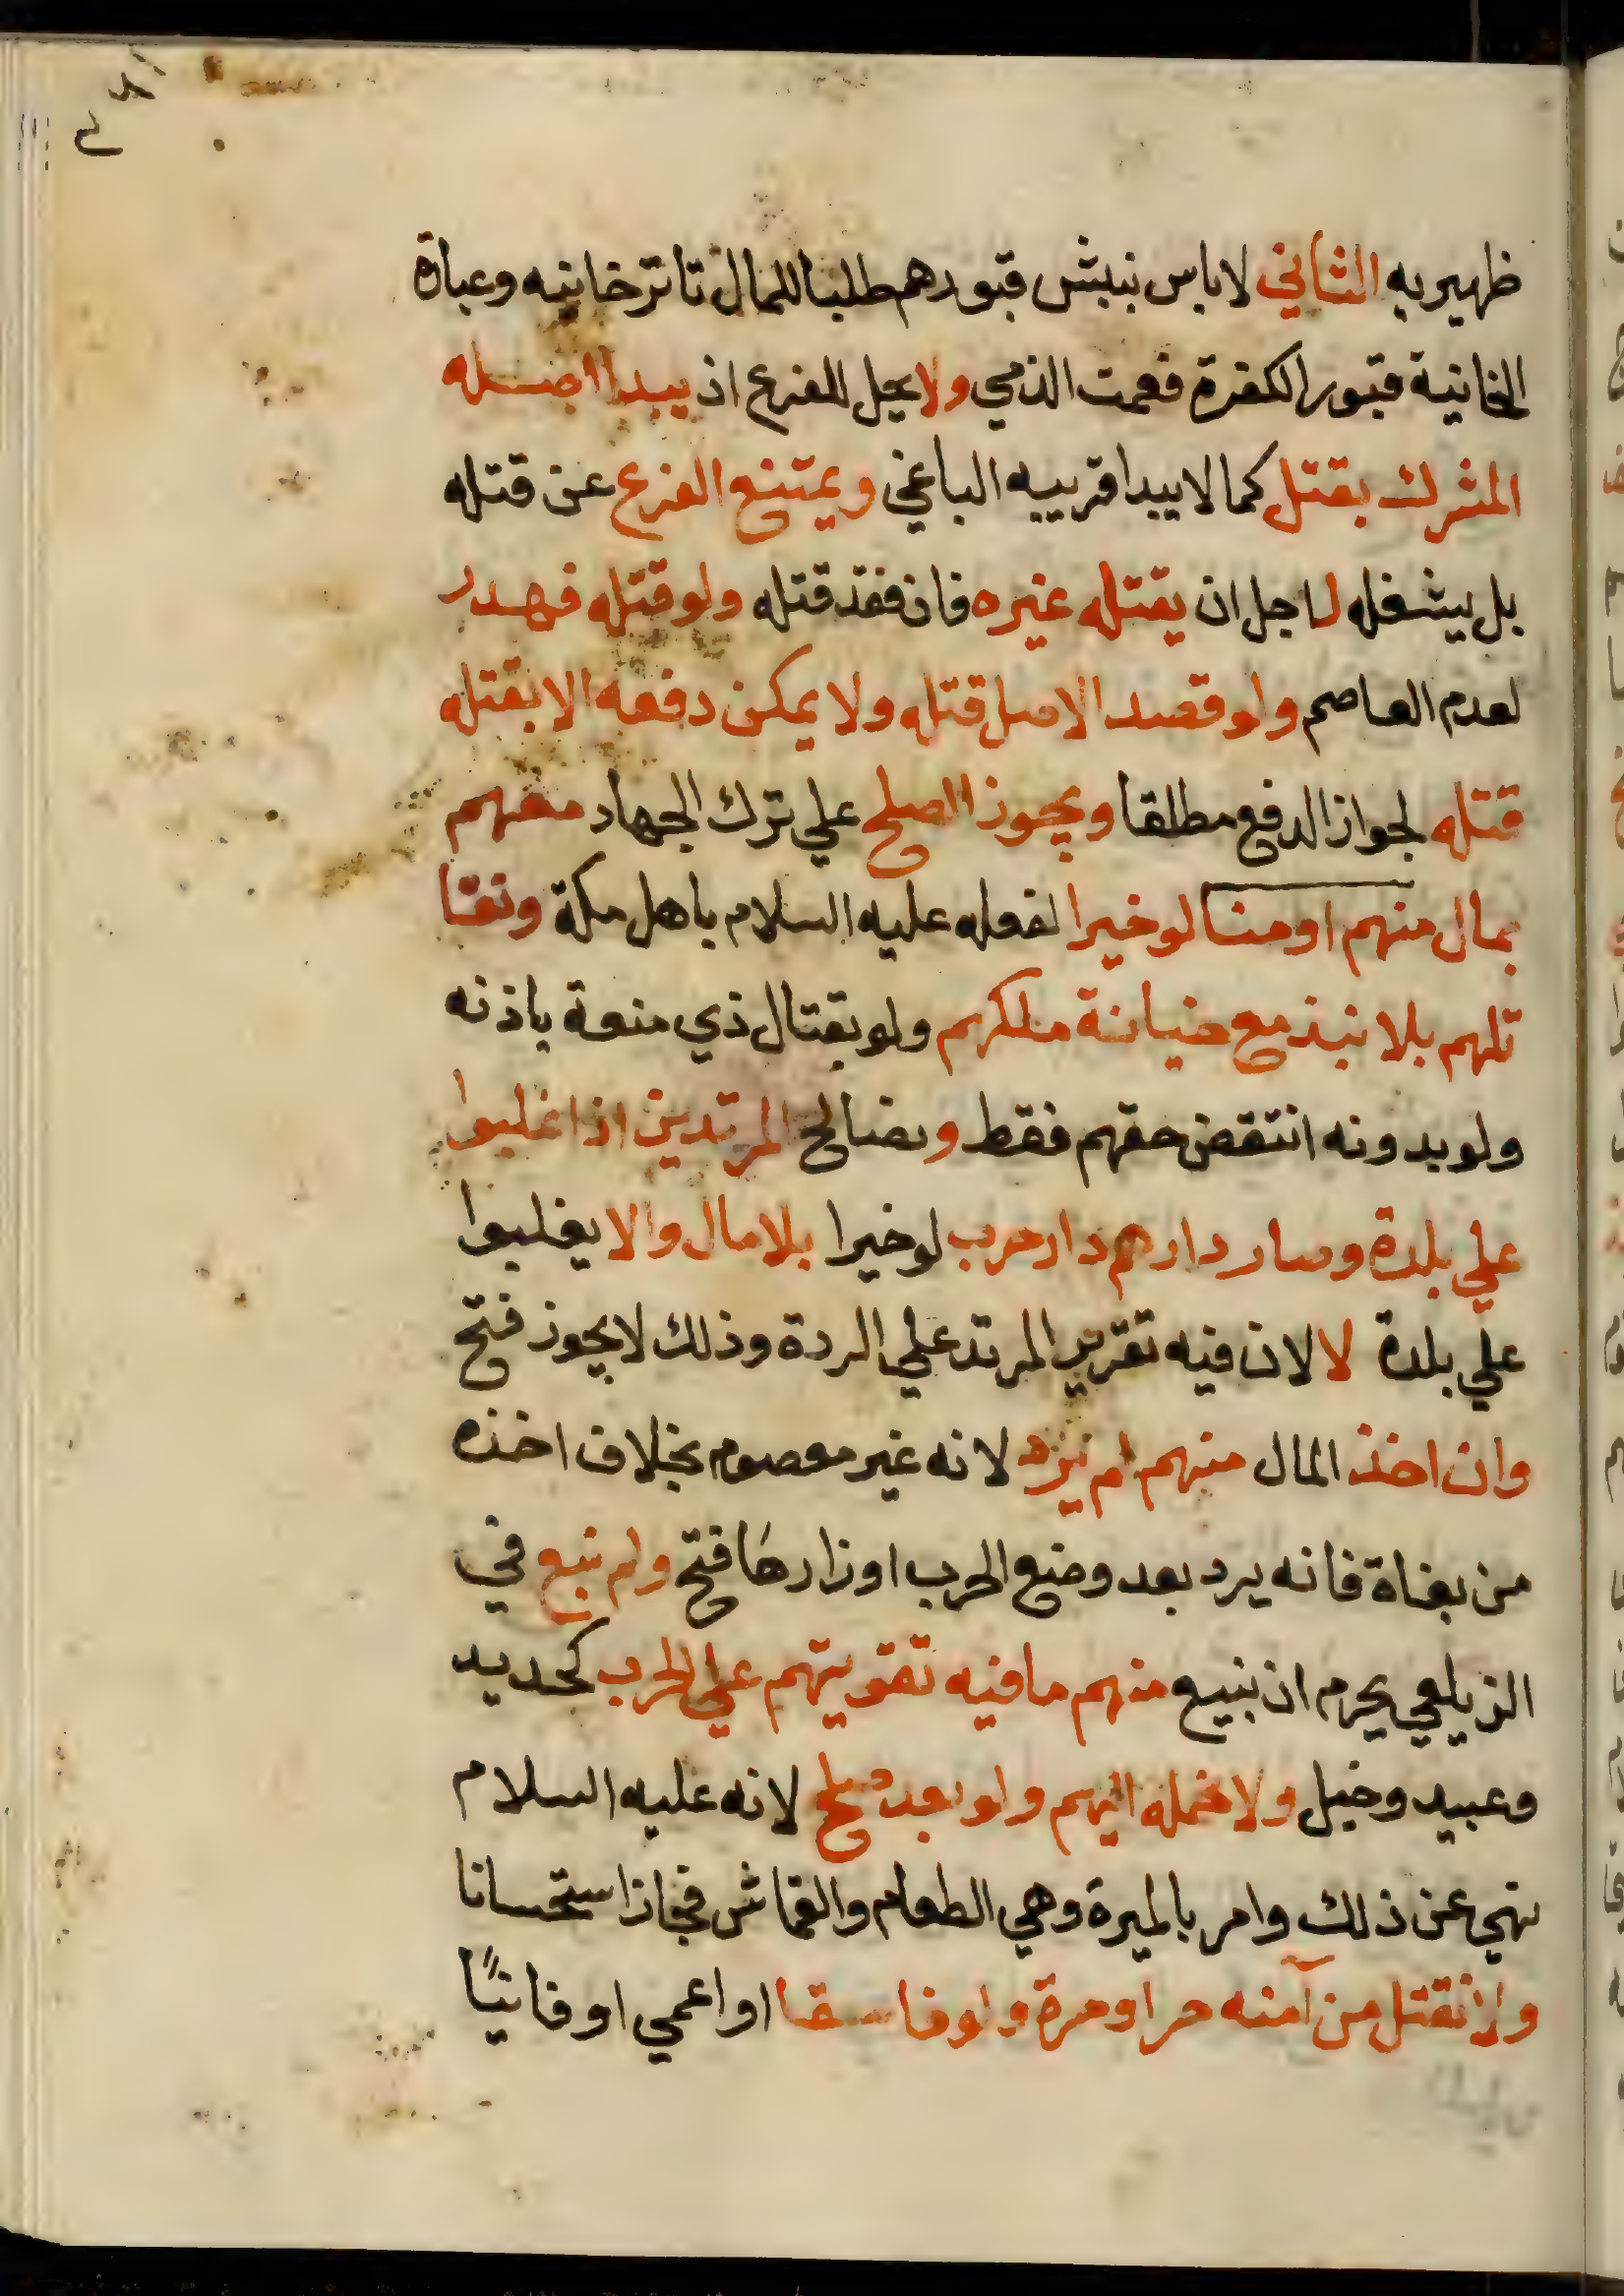 ظهيريه الثاني لا باس بنبش قبورهم طلبا للمال تاترخانيه وعبارة
الخانية قبور الكفرة فعمت الذمي ولا يحل للفرع ان يبدا اصله
المشرك بقتل كما لا يبدا قريبه الباغي ويمتنع الفرع عن قتله
بل يشغله لاجل ان يقتله غيره فان فقد قتله ولو قتله فهدر
لعدم العاصم ولو قصد الاصل قتله ولا يمكن دفعه الا بقتله
قتله لجواز الدفع مطلقا ويجوز الصلح علي ترك الجهاد معهم
بمال منهم او منا لو خيرا لفعله عليه السلام باهل مكة ونقا
تلهم بلا نبذ مع خيانة ملكهم ولو بقتال ذي منعة باذنه
ولو بدونه انتقض حقهم فقط ونصالح المرتدين اذا غلبوا
علي بلدة وصار دارهم دار حرب لو خيرا بلا مال والا يغلبوا
علي بلدة لا لان فيه تقرير المرتد علي الردة وذلك لا يجوز فتح
وان اخذ المال منهم لم يرد لانه غير معصوم بخلاف اخذه
من بغاة فانه يرد بعد وضع الحرب اوزارها فتح ولم نبع في
الزيلعي يحرم ان نبيع منهم ما فيه تقويتهم علي الحرب كحديد
وعبيد وخيل ولا نحمله اليهم ولو بعد صلح لانه عليه السلام
نهي عن ذلك وامر بالميرة وهي الطعام والقماش فجاز استحسانا
ولا نقتل من آمنه حر او حرة ولو فاسقا او اعمي او فانيًا